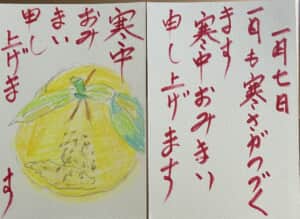 一月七日
一日も寒さがつづく
ます
寒中おみまい
申し上げます
寒中
おみ
まい
申し
上げま
す